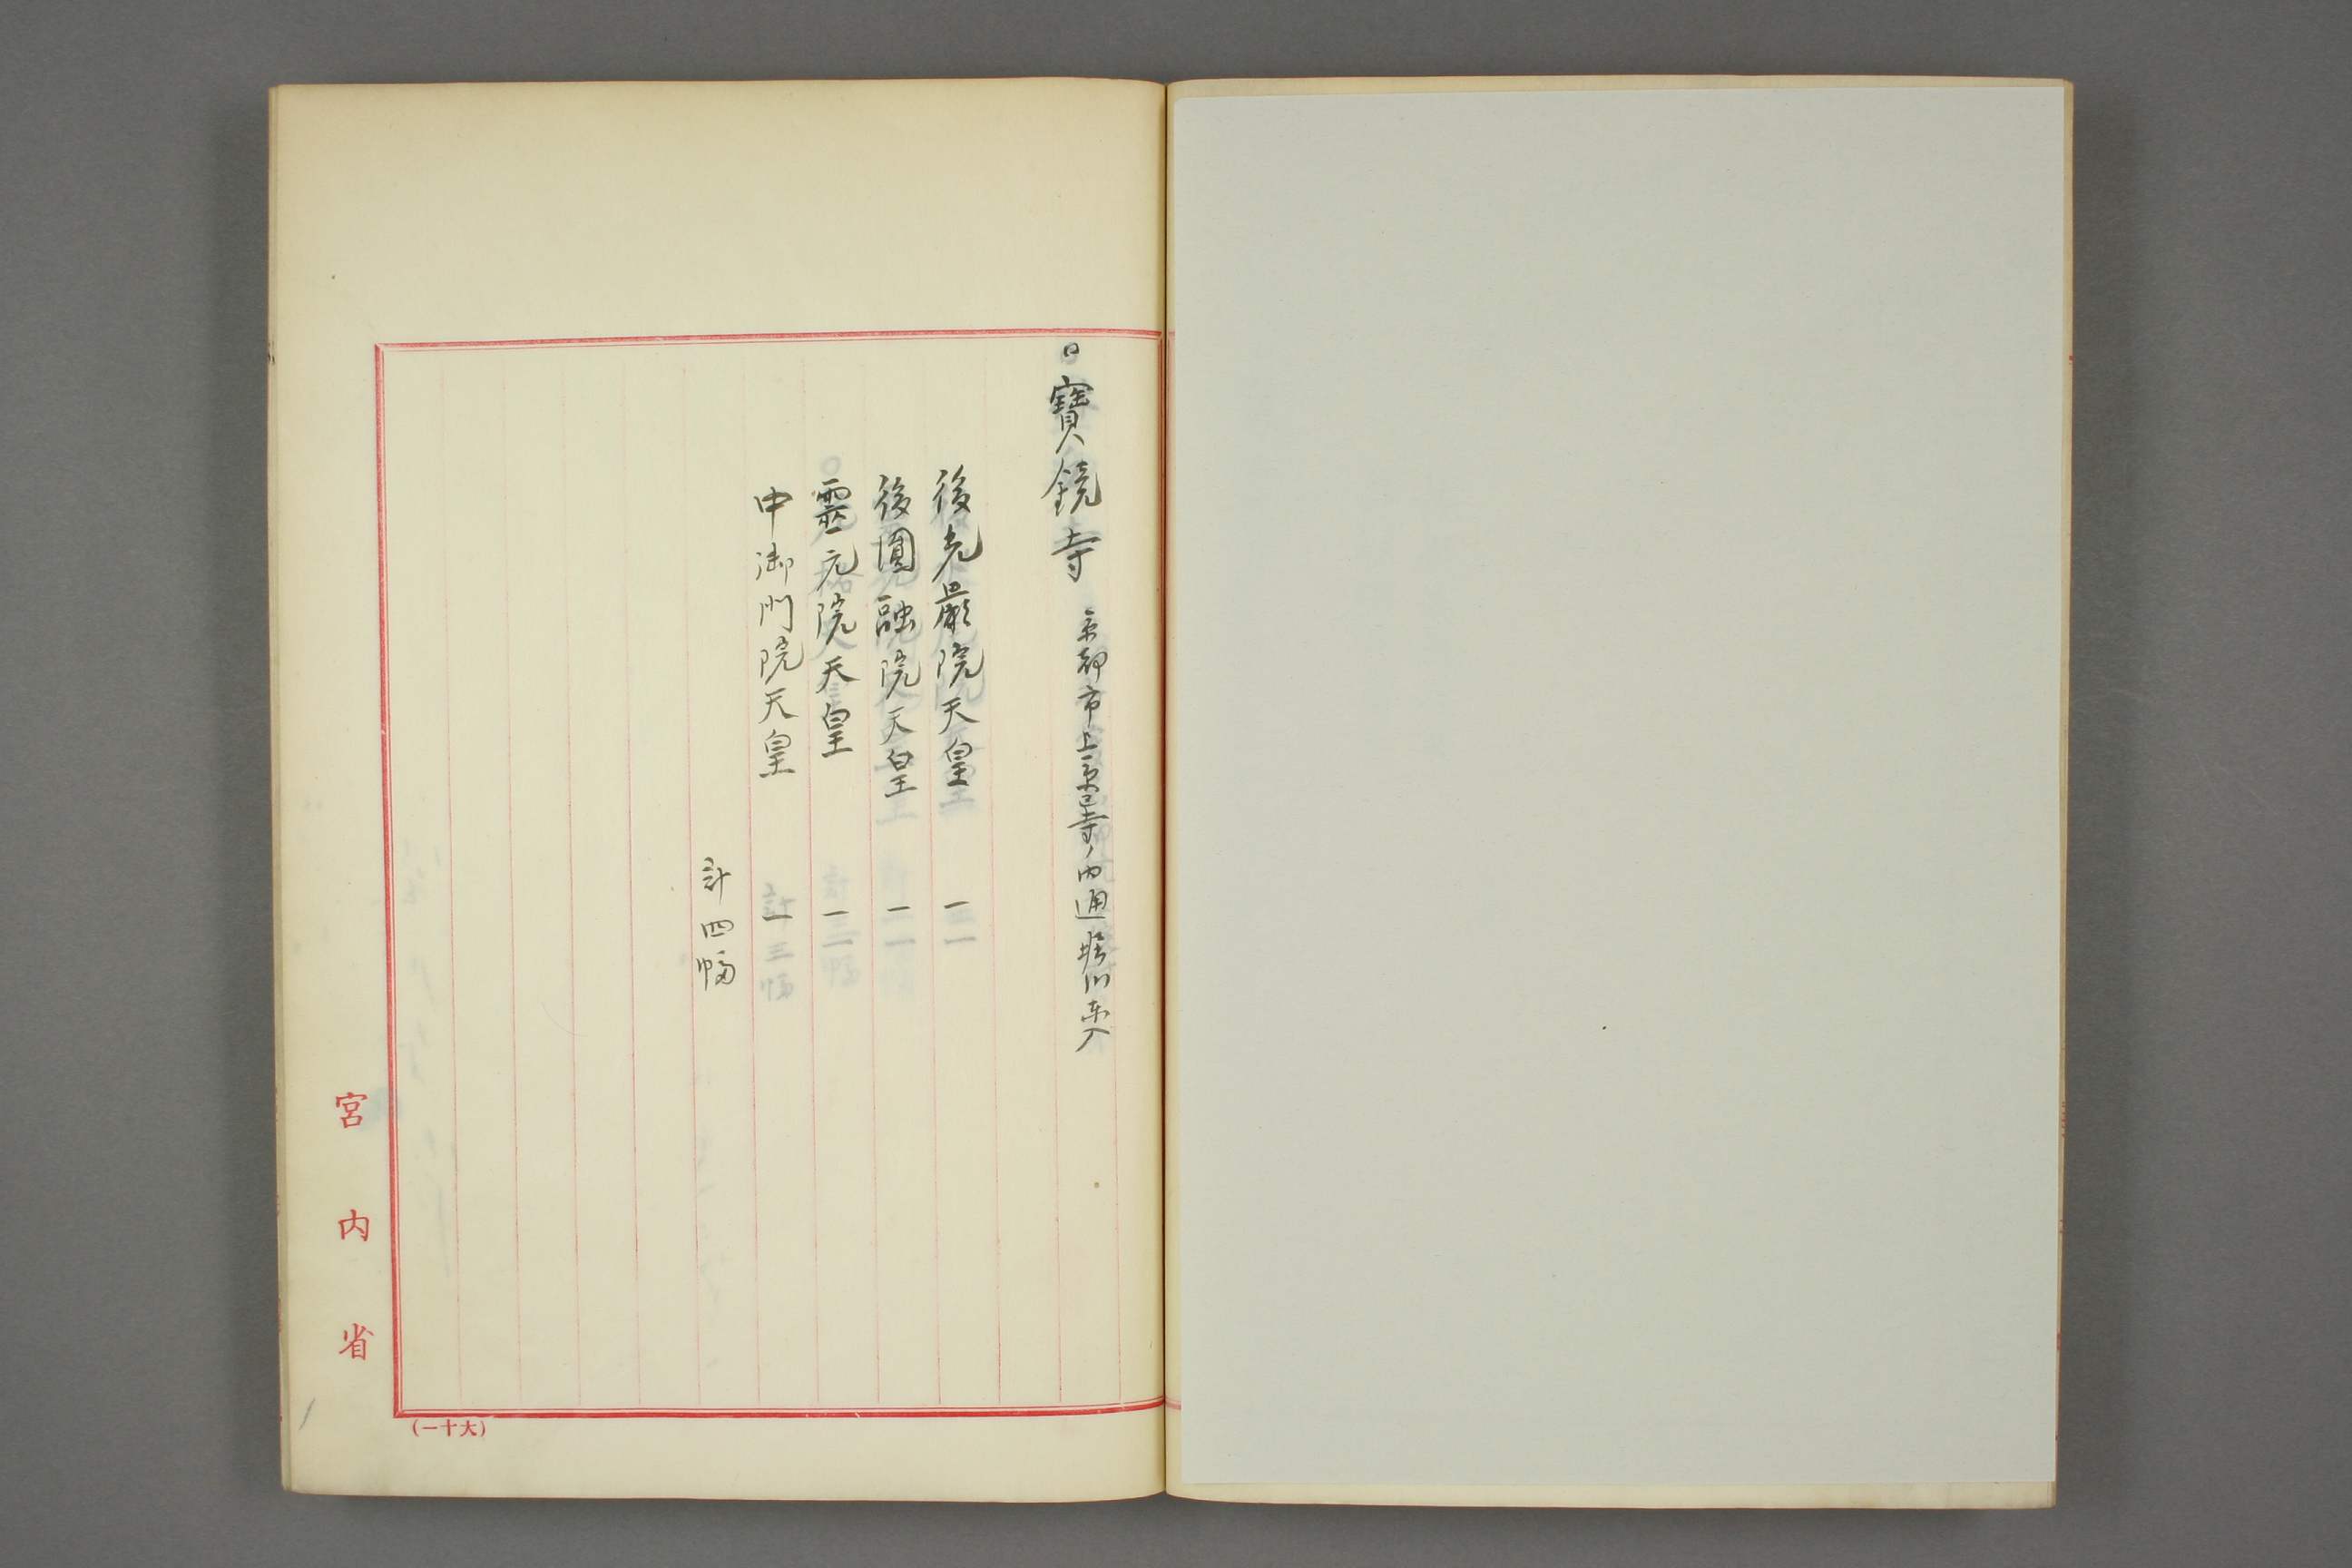 ○寶鏡寺 京都市上京区寺ノ内通堀川東入
後光嚴院天皇 一
後圓融院天皇 一
靈元院天皇 一
中御門院天皇 一
計四幅
宮内省
(大十一)